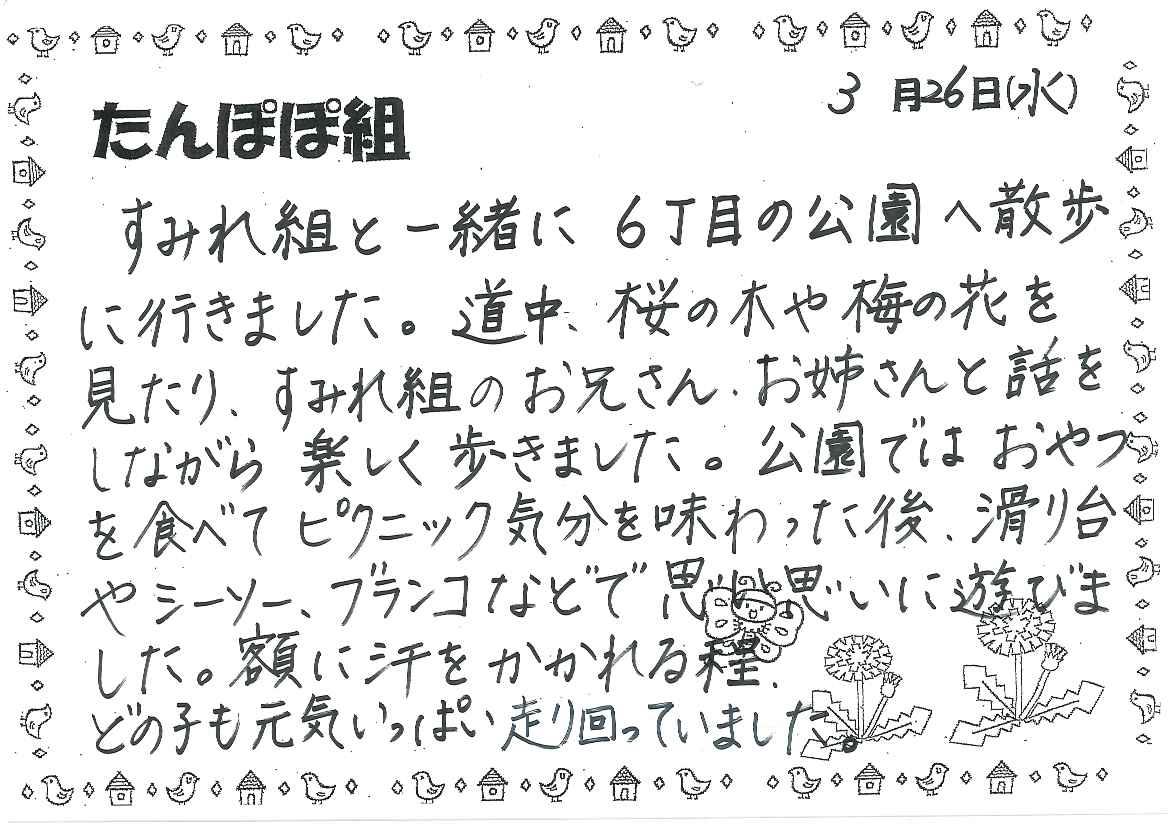 3月26日(水)
たんぽぽ組
すみれ組と一緒に 6丁目の公園へ散歩
に行きました。道中、桜の木や梅の花を
見たり、すみれ組のお兄さん、お姉さんと話を
しながら 楽しく歩きました。公園では おやつ
を食べて ピクニック気分を味わった後、滑り台
やシーソー、ブランコなどで思い思いに遊びま
した。額に汗をかかれる程、
どの子も元気いっぱい走り回っていました。